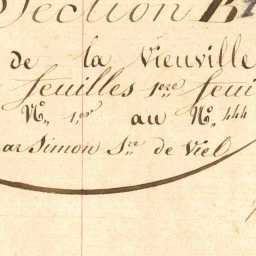 Section B
de la Vieuville
feuilles 1ere feui
N° 1er au N° 444
ar Simon Sre de Viel